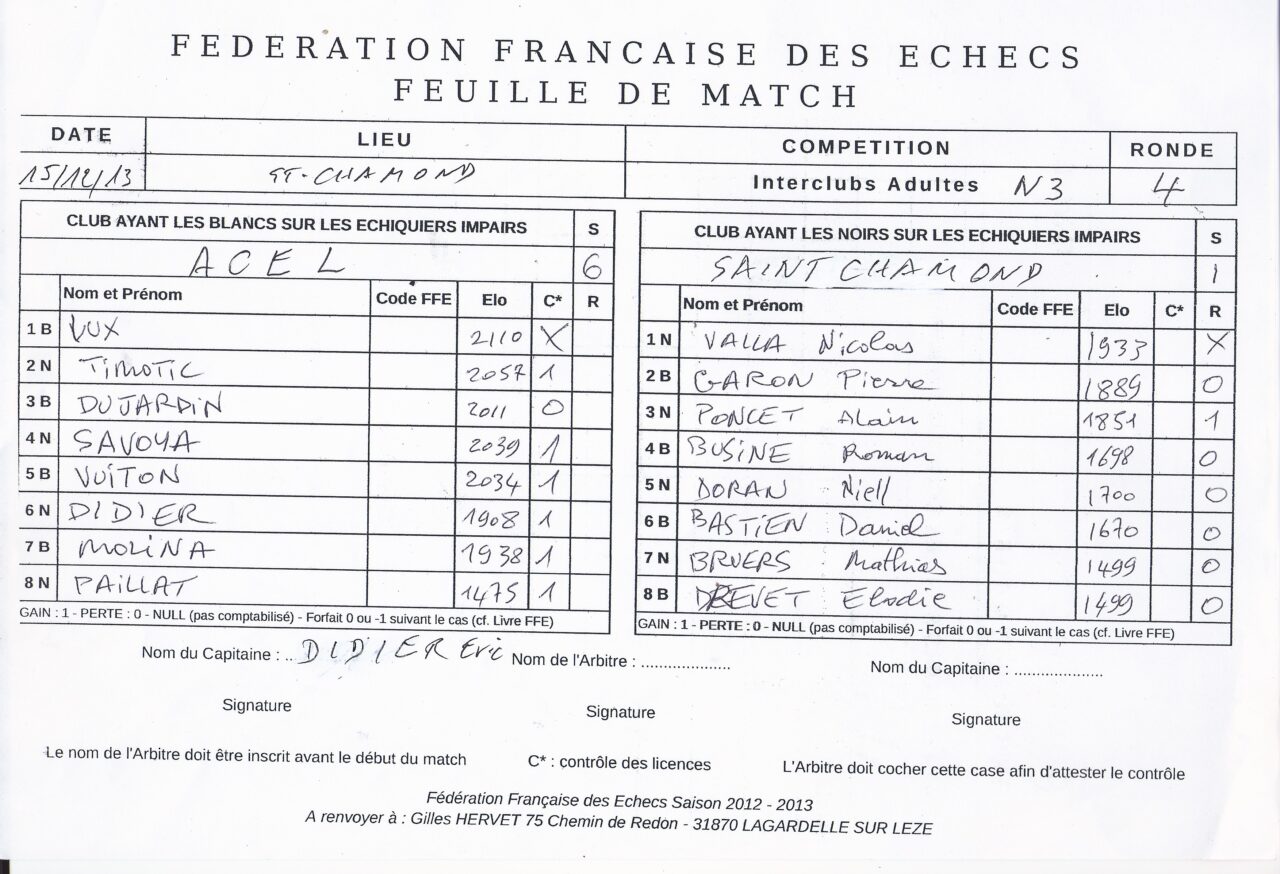 FEDERATION FRANCAISE DES ECHECS
FEUILLE DE MATCH
DATE LIEU COMPETITION RONDE
15/12/13 ST-CHAMOND Interclubs Adultes N3 4
CLUB AYANT LES BLANCS SUR LES ECHIQUIERS IMPAIRS S
ACEL 6
Nom et Prénom Code FFE Elo C* R
1 B VUX 2110 X
2 N TIMOTIC 2057 1
3 B DUJARDIN 2011 0
4 N SAVOYA 2039 1
5 B VUITON 2034 1
6 N DIDIER 1908 1
7 B MOLINA 1938 1
8 N PAILLAT 1475 1
GAIN : 1 - PERTE : 0 - NULL (pas comptabilisé) - Forfait 0 ou -1 suivant le cas (cf. Livre FFE)
CLUB AYANT LES NOIRS SUR LES ECHIQUIERS IMPAIRS S
SAINT CHAMOND 1
Nom et Prénom Code FFE Elo C* R
1 N VALLA Nicolas 1933 X
2 B GARON Pierre 1889 0
3 N PONCET Alain 1851 1
4 B BUSINE Roman 1698 0
5 N DORAN Niell 1700 0
6 B BASTIEN Daniel 1670 0
7 N BRUERS Mathias 1499 0
8 B DREVET Elodie 1499 0
GAIN : 1 - PERTE : 0 - NULL (pas comptabilisé) - Forfait 0 ou -1 suivant le cas (cf. Livre FFE)
Nom du Capitaine : .. DIDIER Eric Nom de l'Arbitre : .................... Nom du Capitaine : ....................
Signature Signature Signature
Le nom de l'Arbitre doit être inscrit avant le début du match C* : contrôle des licences L'Arbitre doit cocher cette case afin d'attester le contrôle
Fédération Française des Echecs Saison 2012 - 2013
A renvoyer à : Gilles HERVET 75 Chemin de Redon - 31870 LAGARDELLE SUR LEZE